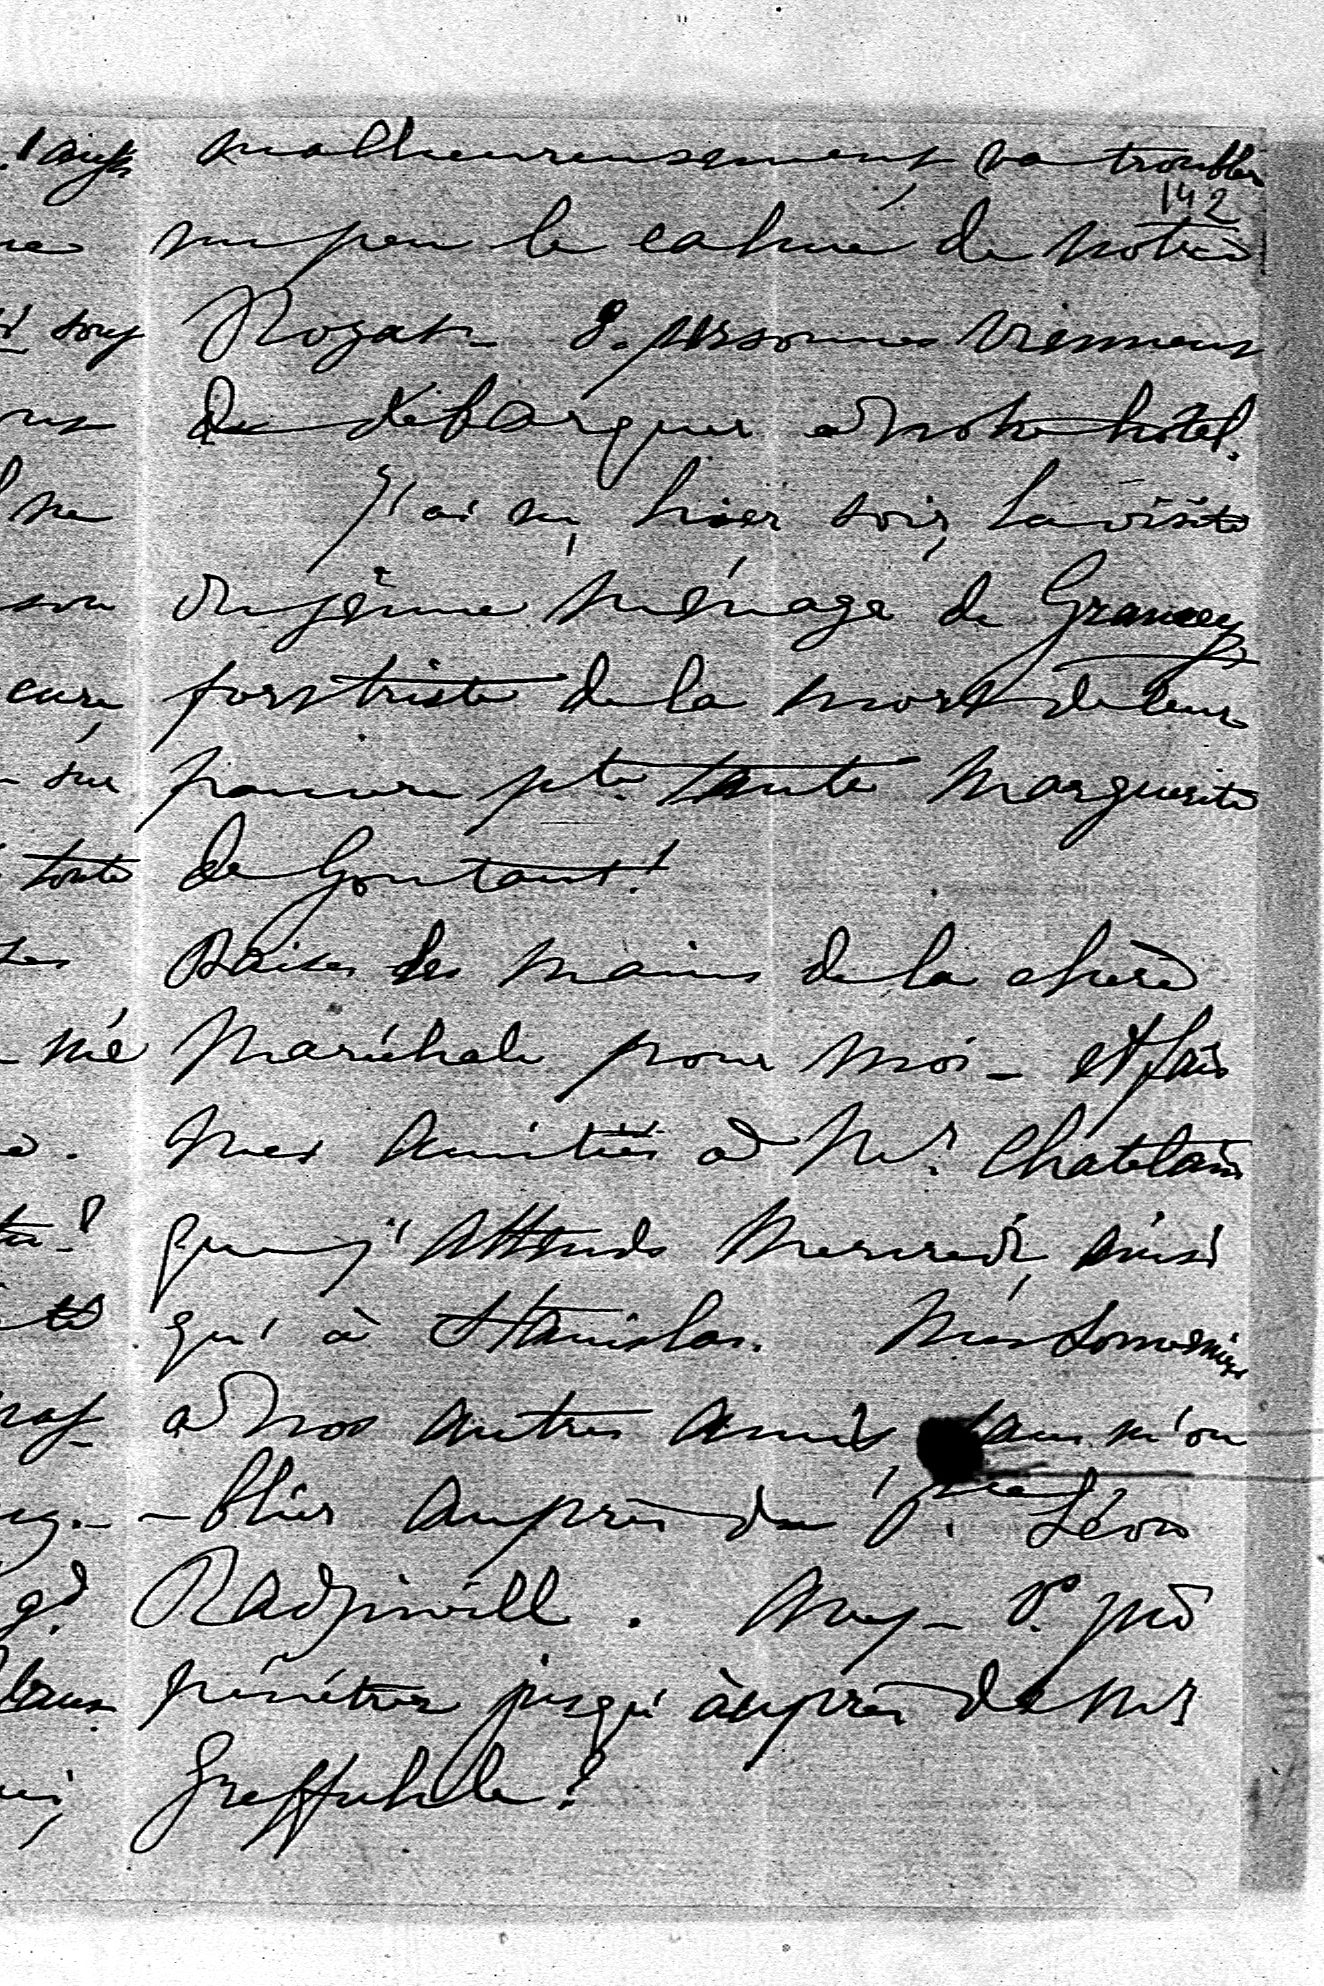 malheureusement, va troubler
142
un peu le calme de notre
Rozat - 8. personnes viennent
de débarquer à notre hotel.
J'ai eu, hier soir, la visite
du jeune ménage de Grancey
fort triste de la mort de leur
pauvre pte. tante Marguerite
de Gontaut!
Baises les mains de la chère
Maréchale pour moi - et fais
mes amitiés à Mr. Chatelain
que j'attends Mercredi, ainsi
qu'à Stanislas. Mes souvenirs
à nos autres amis, sans m'ou
-blier auprès du Pce. Léon
Radziwill.
pénétrer jusqu'auprès de Mr
Greffuhle?